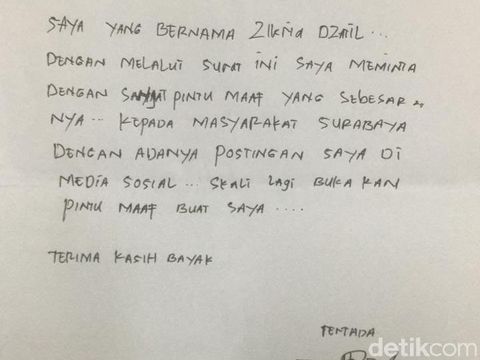 SAYA YANG BERNAMA ZIKRIA DZATIL...
DENGAN MELALUI SURAT INI SAYA MEMINTA
DENGAN PINTU MAAF YANG SEBESAR"
NYA... KEPADA MASYARAKAT SURABAYA
DENGAN ADANYA POSTINGAN SAYA DI
MEDIA SOSIAL... SKALI LAGI BUKA KAN
PINTU MAAF BUAT SAYA ....
TERIMA KASIH BAYAK
TERTADA
detikcom